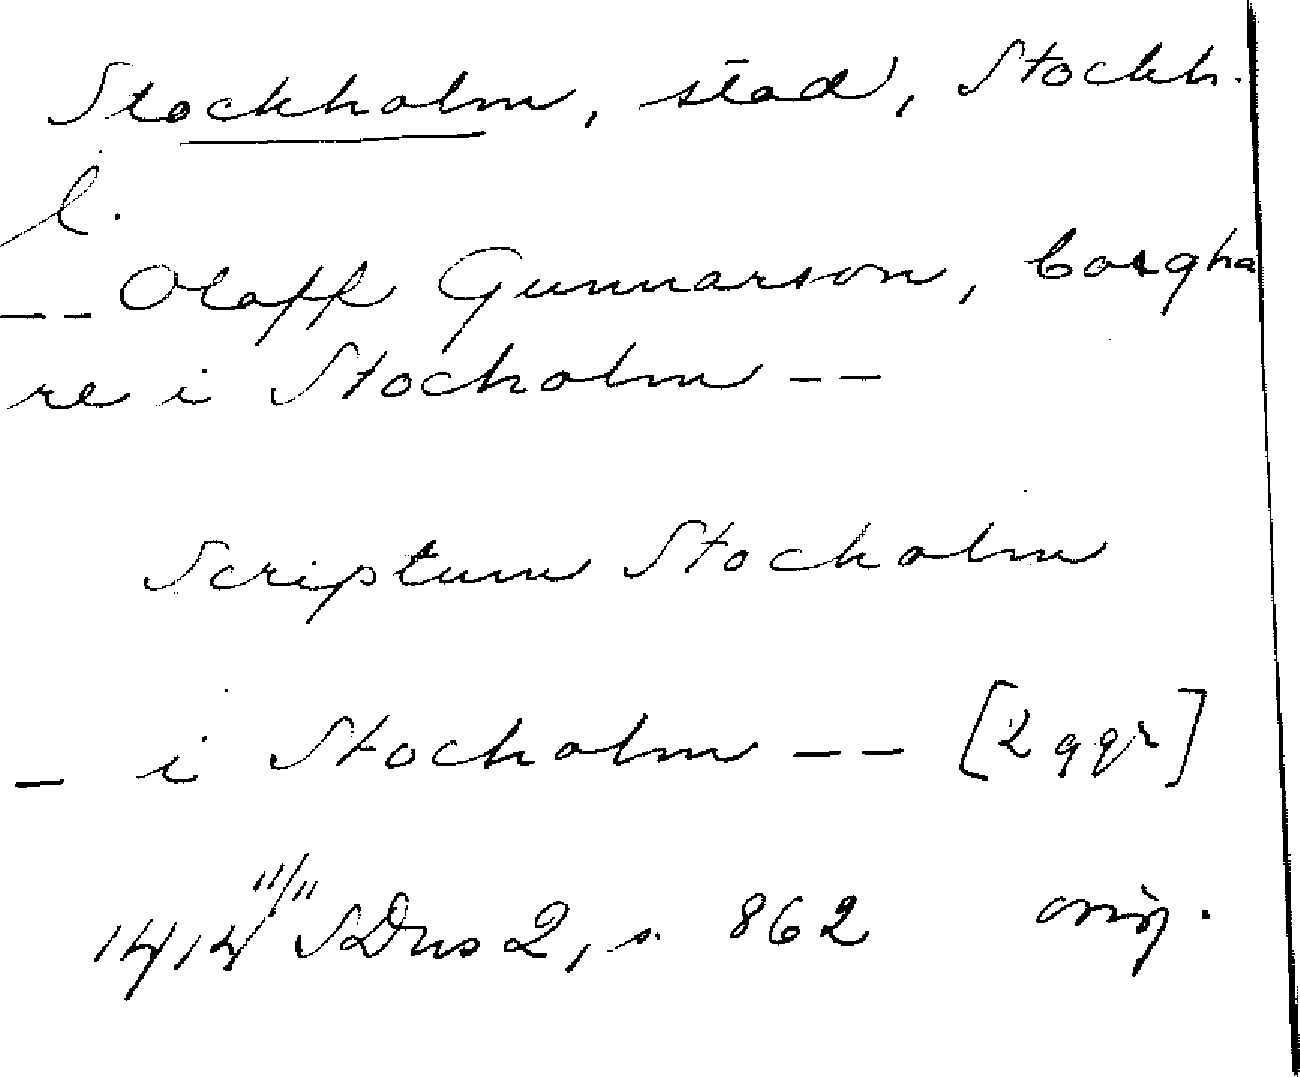 Stockholm, stad, Stockh.
l.
-- Olaff Gunnarson, borgha
re i Stocholm --
Scriptum Stocholm
- i Stocholm -- [2 ggr]
1414 11/11 SDns 2, s. 862 orig.